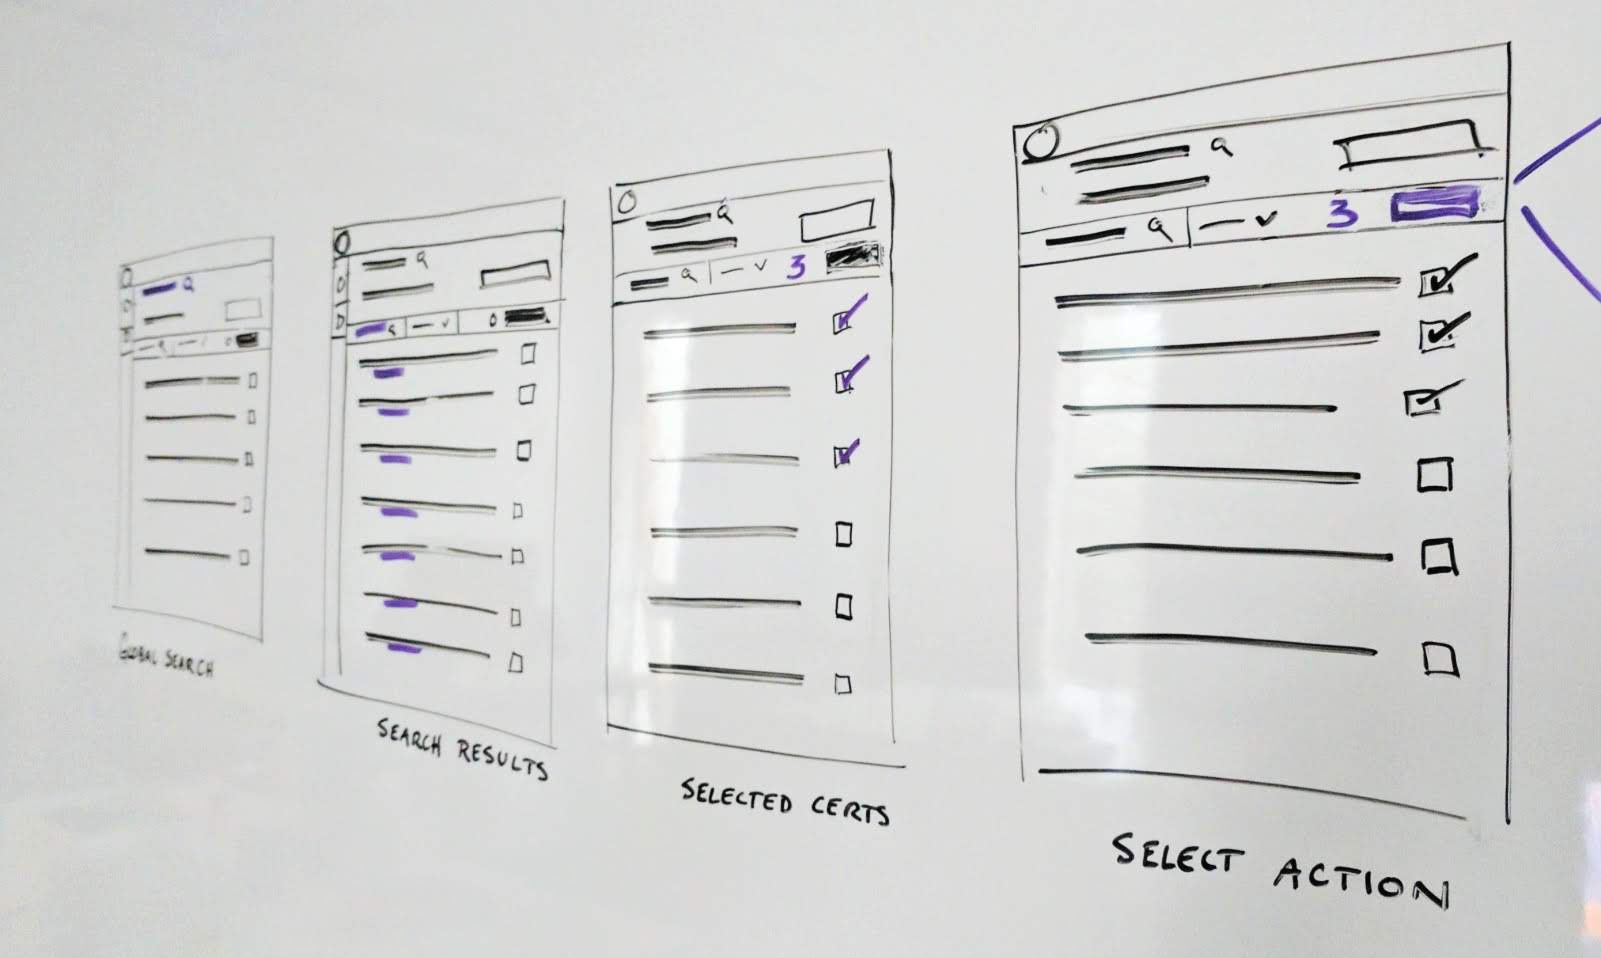 3
3
GLOBAL SEARCH
SEARCH RESULTS
SELECTED CERTS
SELECT ACTION